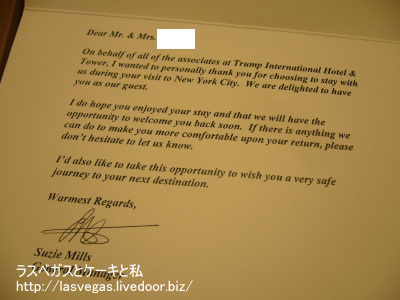 Dear Mr. & Mrs.
On behalf of all of the associates at Trump International Hotel &
Tower, I wanted to personally thank you for choosing to stay with
us during your visit to New York City.  We are delighted to have
you as our guest.
I do hope you enjoyed your stay and that we will have the
opportunity to welcome you back soon.  If there is anything we
can do to make you more comfortable upon your return, please
don't hesitate to let us know.
I'd also like to take this opportunity to wish you a very safe
journey to your next destination.
Warmest Regards,
Suzie Mills
Manager
ラスベガスとケーキと私
http://lasvegas.livedoor.biz/